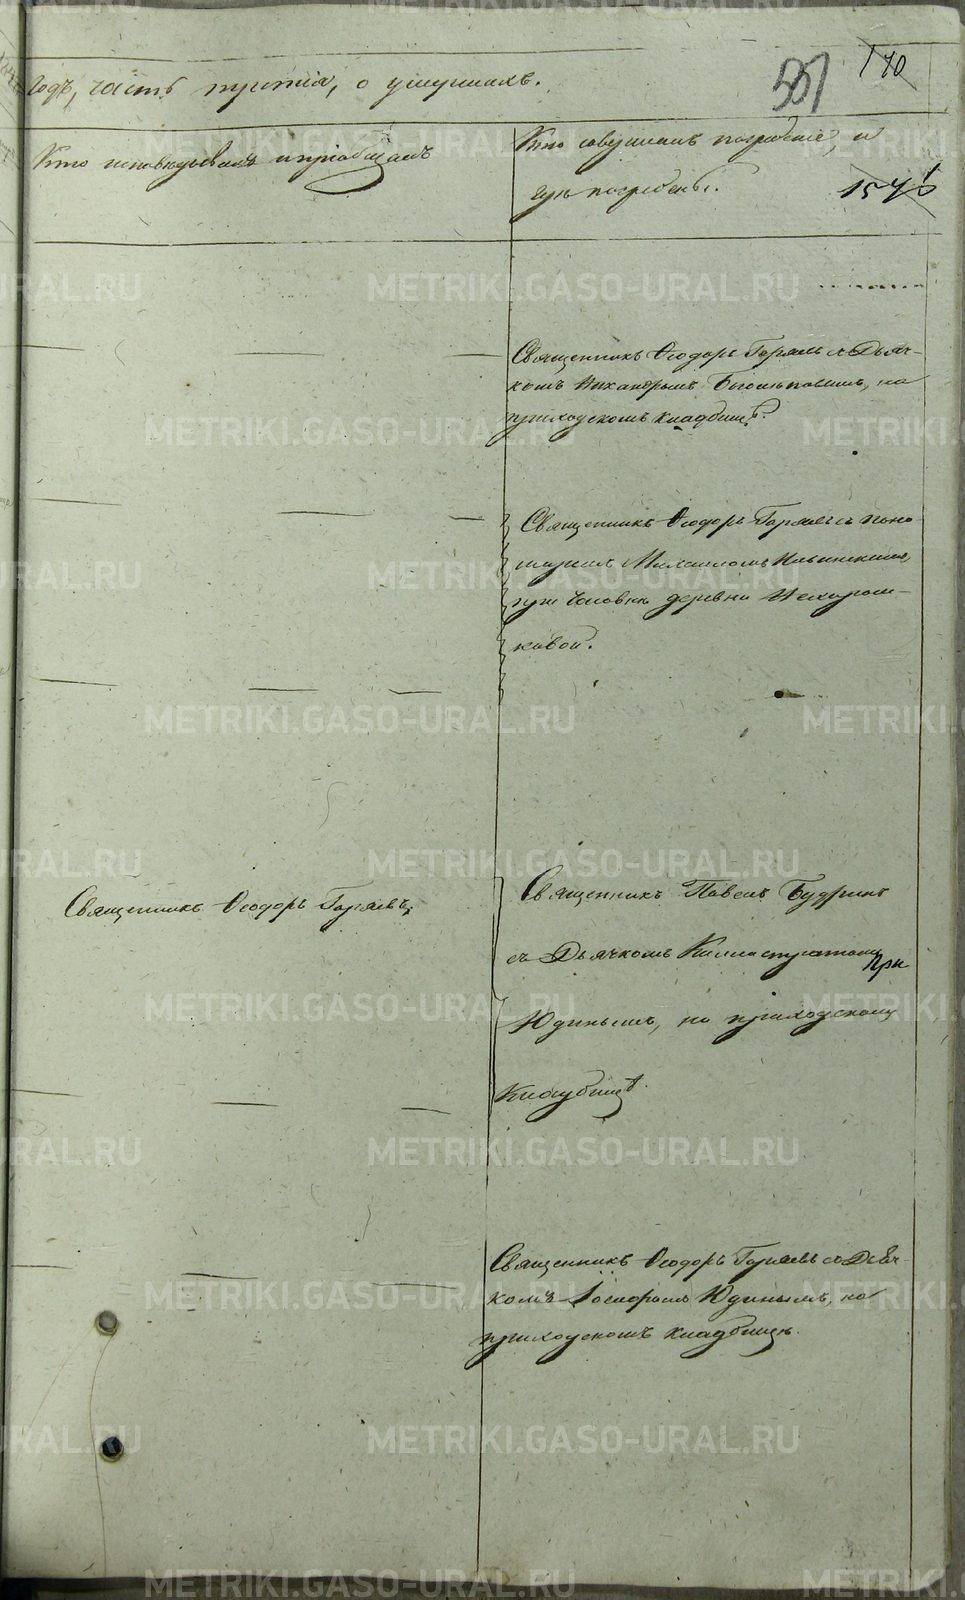 годъ, часть третія, о умершихъ.
501
170
Кто исповѣдывалъ и пріобщалъ
Кто совершалъ погребеніе, и
гдѣ погребены.
Священникъ Ѳеодоръ Горяевъ съ Дьяч-
комъ Никаноромъ, на
приходскомъ кладбищѣ.
Священникъ Ѳеодоръ Горяевъ съ поно-
маремъ Михаиломъ Ильинскимъ,
при часовнѣ деревни Нехорош-
ковой.
Священникъ Ѳеодоръ Горяевъ
Священникъ Павелъ Будринъ
съ Дьячкомъ Каллистратомъ
Юдинымъ, на приходскомъ
Кладбищѣ.
Священникъ Ѳеодоръ Горяевъ съ Дьяч-
комъ Юдинымъ, на
приходскомъ кладбищѣ.
METRIKI.GASO-URAL.RU